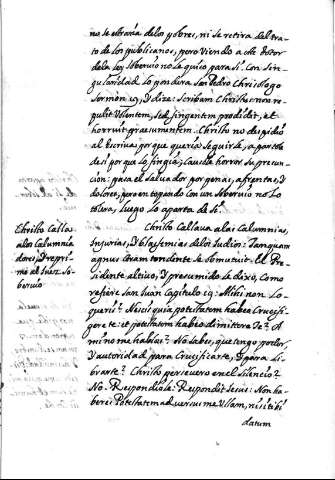 no se estraña delos pobres, ni se retira del tra-
to de los publicanos, pero viendo a este Doctor
dela ley soberuio no le quiso para si. Con sin-
gularidad lo pondera San Pedro Chrisologo
sermon 19, y dize: scribam Christus non re-
pulit Volentem, sed fingentem prodidit, et
horruit praesumentem. Christo no despidio
al Escriua porque queria seguirle, a partole
de si porque lo fingia; Causole horror su presun-
cion: pasa el saluador por penas, afrentas, y
dolores, pero en topando con un soberuio no lo
tolera, luego lo aparta de si.
Christo Callaua alas Calumnias,
Injurias, y blasfemias delos Iudios: Tanquam
agnus coram tondente se obmutuit. El Pre-
sidente altiuo, y presumido le dixo, Como
refiere San Iuan Capitulo 19: Mihi non Lo-
queris? Nescis quia potestatem habeo Crucifi-
gere te: et potestatem habeo dimittere te? A
mi no me hablas? No sabes, que tengo poder,
y autoridad para Crucificarte, y para Li-
brarte? Christo perseuero en el silencio?
No. Respondiole: Respondit Iesus: Non ha-
beres Potestatem aduersus me Vllam, nisi tibi
datum
Christo Calla
alos Calumnia
dores, y repri-
me al Iuez so-
beruio